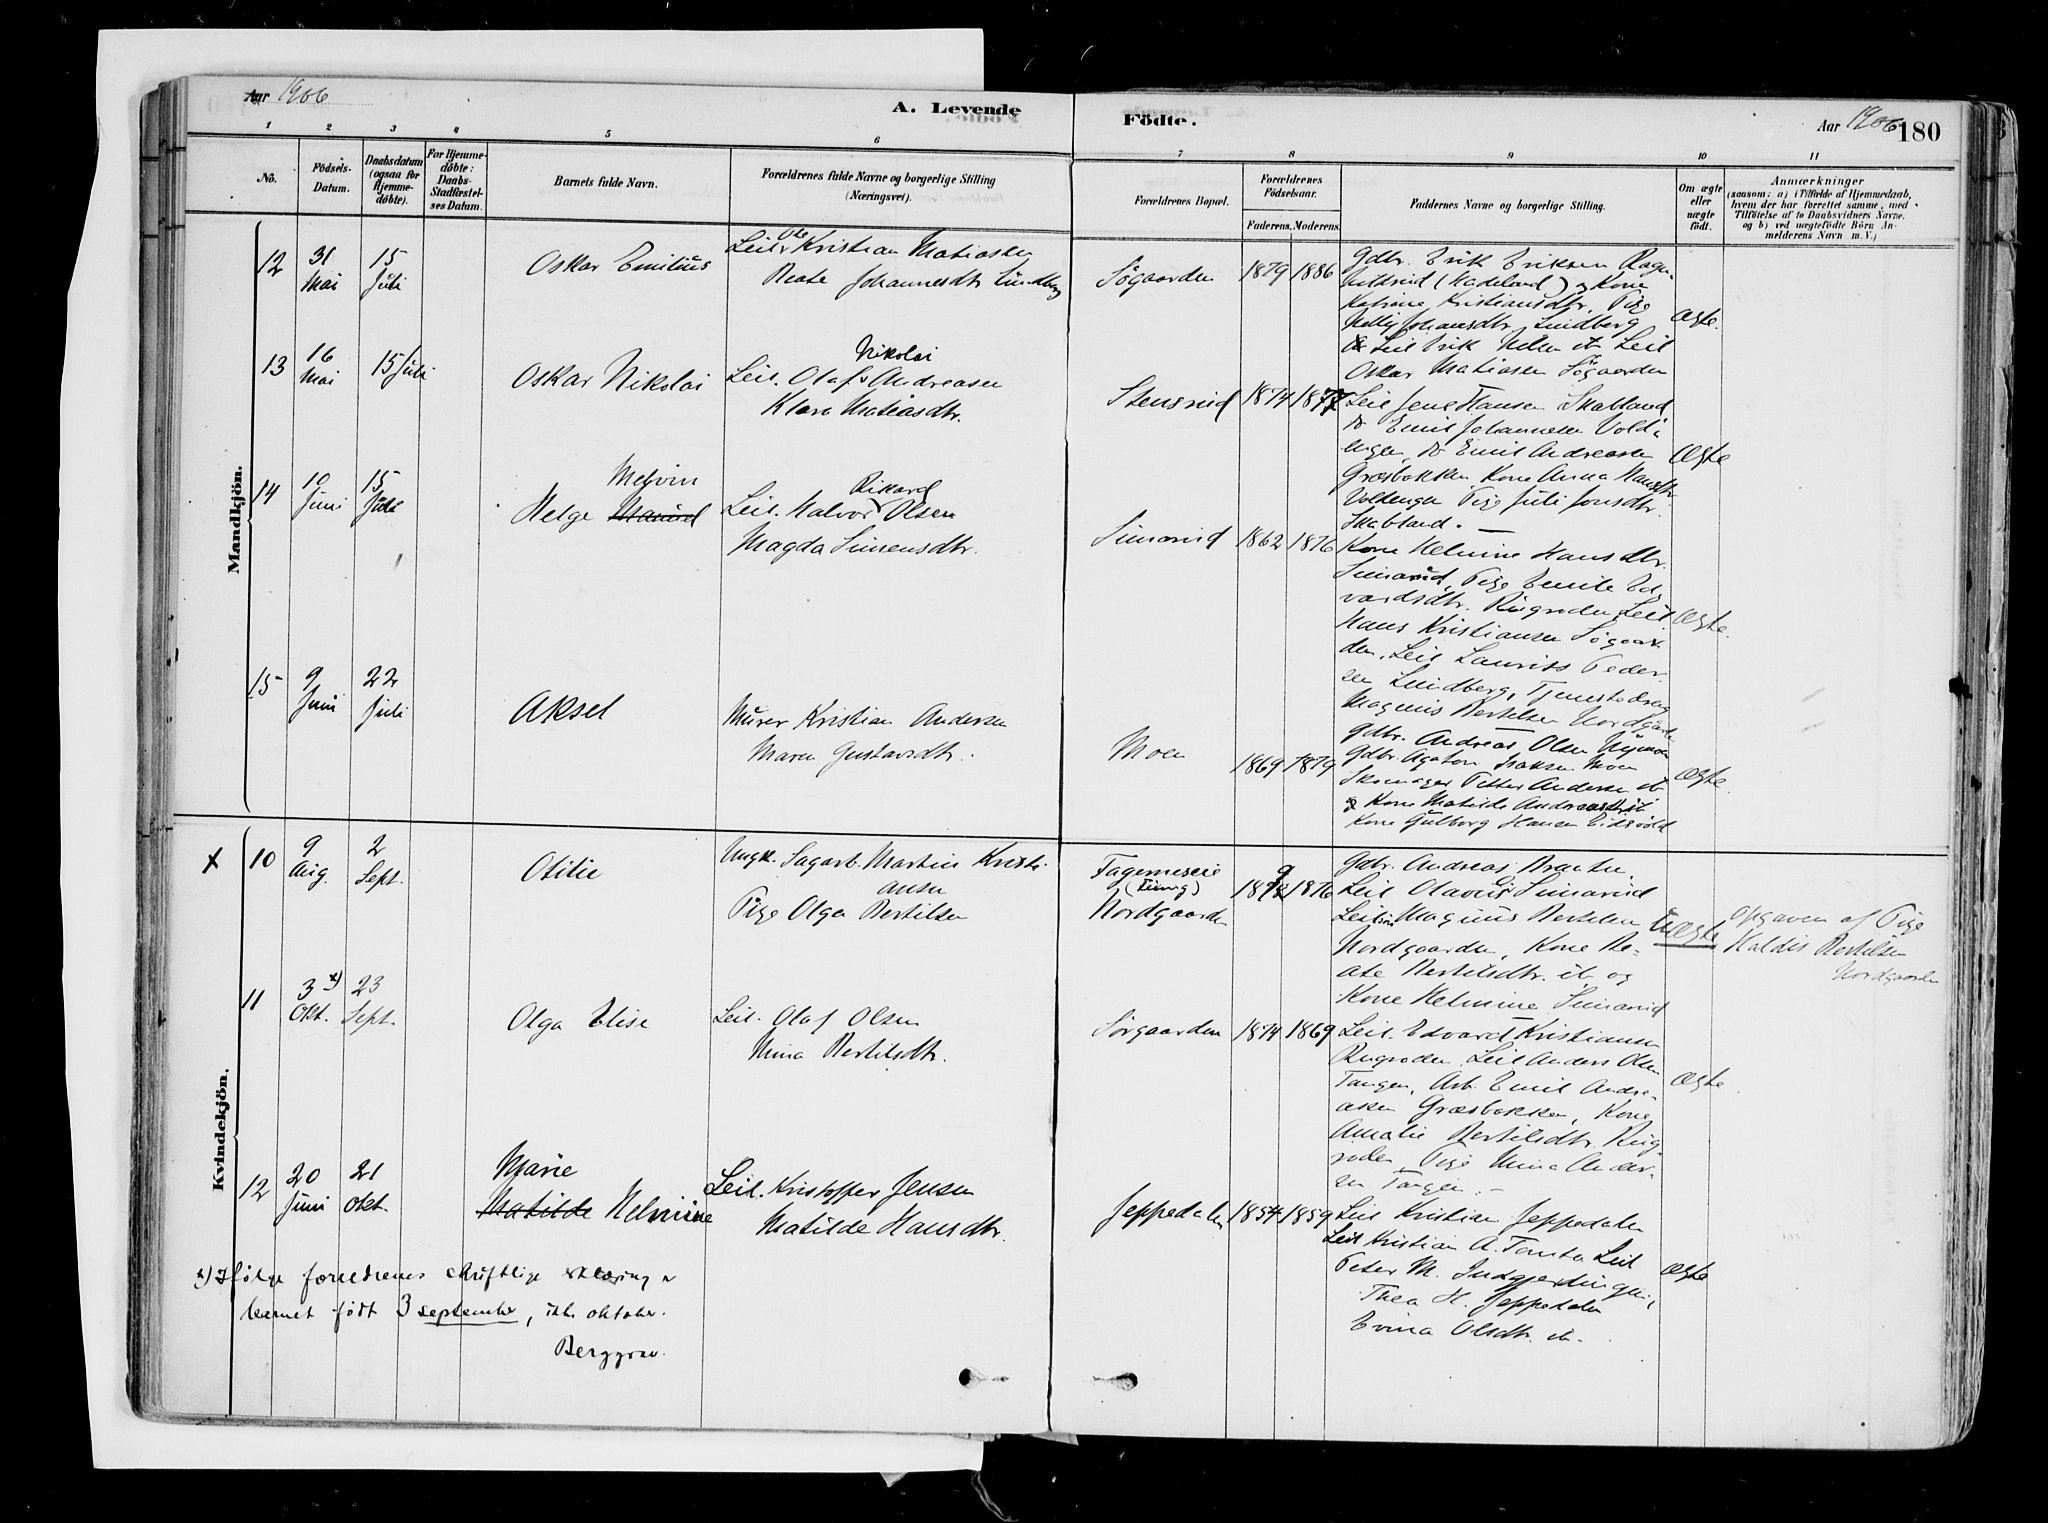 Aar 1906
A. Levende
Födte.
Aar 1906
180
1 2 3 4 5 6 7 8 9 10 11
No.
Födsels-
Datum.
Daabsdatum
(ogsaa for
Hjemme-
döbte).
For Hjemme-
döbte:
Daabs-
Stadfæstel-
ses Datum.
Barnets fulde Navn.
Forældrenes fulde Navne og borgerlige Stilling
(Næringsvei).
Forældrenes Bopæl.
Forældrenes
Födselsaar.
Faderens.
Moderens.
Faddernes Navne og borgerlige Stilling.
Om ægte
eller
uægte
født.
Anmærkninger
(saasom: a) i Tilfælde af Hjemmedaab,
hvem der har forrettet samme, med
Tilföielse af to Daabsvidners Navne.
og b) ved uægtefödte Börn An-
melderens Navn m. V.)
Mandkjön.
12
31
Mai
15
Juli
Oskar Emilius
Leil. Ole Kristian Matiasen
Beate Johannesdtr. Lundberg
Søgaarden
1879
1886
Gdbr. Erik Eriksen Ragn-
hildrud (Hadeland) og Kone
Katrine Kristiansdtr., Pige
Nelly Johansdtr. Lundberg
Leil Erik Nilsen ib Leil
Oskar Matiasen Søgaarden
Ægte.
13
16
Mai
15 Juli
Oskar Nikolai
Nikolai
Leil. Olaf Andreasen
Klara Matiasdtr.
Stensrud
1874
1877
Leil Jens Hansen Skabland
Do Emil Johannesen Vold-
engen, Do Emil Andreasen
Græsbakken, Kone Anna Hansdtr.
Voldengen Pige Juli Jonsdtr.
Skabland.
Ægte
14
10
Juni
15
Juli
Melvin
Helge Manuel
Rikard
Leil. Halvor Olsen
Magda Simensdtr.
Simarud
1862
1876
Kone Helmine Hansdtr.
Simarud, Pige Emile Ed-
vardsdtr. Ringroden Leil
Hans Kristiansen Søgaar-
den, Leil Laurits Peder-
sen Lundberg, Tjenestedreng
Magnus Bertilsen Nordgaarden
Ægte.
15
9
Juni
22
Juli
Aksel
Murer Kristian Andersen
Maren Gustavsdtr.
Moen
1869
1879
Gdbr. Andreas Olsen Nymoen
Gdbr. Agaton Isaksen Moen
Skomager Petter Andersen ib
og Kone Matilde Andreasdtr. ib
Kone Gulborg Hansen Eidsvold
Ægte.
Kvindekjön.
x
10
9
Aug.
2
Sept.
Otilie
Ungk. Sagarb. Martin Kristi-
ansen
Pige Olga Bertilsen
Fagerneseie
Nordgaarden
1876
Gdbr. Andreas Braaten,
Leil Olavus Simarud
Leilsøn Magnus Bertilsen
Nordgaarden, Kone Be-
ate Bertilsdtr. ib og
Kone Helmine Simarud
Uægte
Opgaven af Pige
Haldis Bertilsen
Nordgaarden
11
3 x)
Okt.
23
Sept.
Olga Elise
Leil. Olaf Olsen
Mina Bertilsdtr.
Sørgaarden
1874
1869
Leil. Edvard Kristiansen
Ringroden, Leil Anders Olsen
Tangen, Arb. Emil Andre-
asen Græsbakken, Kone
Amalie Bertilsdtr. Ring-
roden, Pige Mina Ander-
sen Tangen.
Ægte.
12
20
Juni
21
Okt.
Marie
Matilde Helmine
Leil. Kristoffer Jensen
Matilde Hansdtr.
Jeppedalen
1854
1859
Leil Kristian Jeppedalen
Leil Kristian A. Leil
Peter M. Indgjerdingen,
Thea H. Jeppedalen
Evina Olsdtr. ib.
Ægte
x) Ifølge forældrenes skriftlige erklæring er
barnet født 3 september, ikke oktober.
Berggrav.